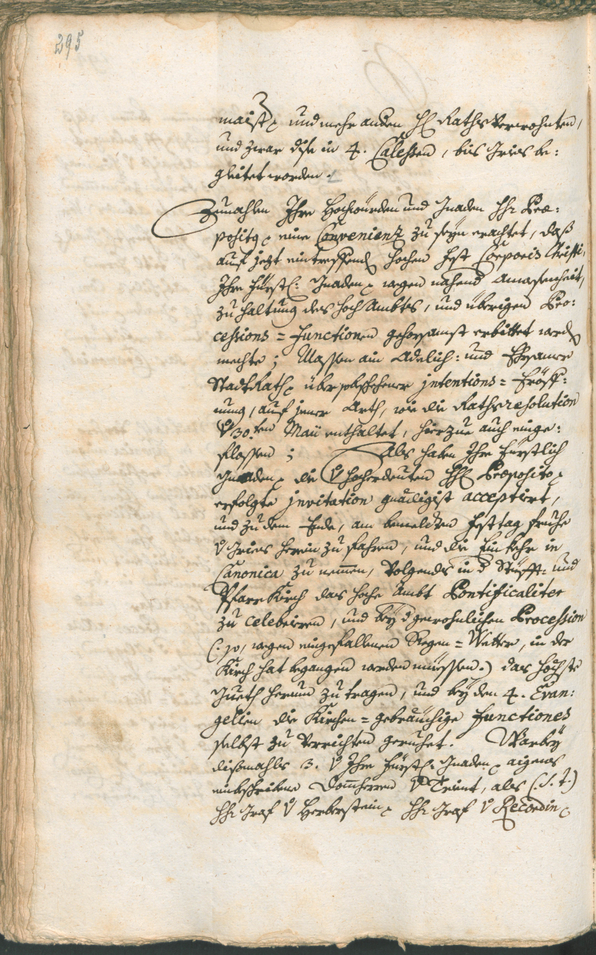 295
maist. und mehr anderen HH. Raths Verwohnten,
und zwar dise in 4. Calessen, bis Gries be:
gleitet worden.
Zumahlen Ihro Hochwürden und Gnaden Hhr. Præ:
posito eine Convenienz zu seyn erachtet, daß
auf jetzt eintreffend hochen Fest Corporis Christi,
Ihro Fürstl: Gnaden wegen nahend Anwesenheit,
zu haltung des Hoch Ambtes, und übrigen Pro:
cessions = Functionen gehorsamst erbittet werden
mechte; Massen ain Adelich: und Ehrsamer
Stadt Rath über beschehene intentions = Eröff:
nung, auf jener Arth, wie die Rathsresolution
v. 30.ten Maii enthaltet, hierzue auch einge:
flossen; Als haben Ihro Fürstlich
Gnaden die v. hochgedeuten HH. Præposito
erfolgte invitation gnädigist acceptiert,
und zu dem Ende, am bemeldten Festtag fruhe
v. Gries herein zu fahren, und die Einkehr in
Canonica zu nemmen, volgends in d. Stüfft: und
Pfarr Kirch das hoche Ambt Pontificaliter
zu celebriren, und bey d. gewohnlichen Procession
(: so, wegen eingefallenen Regen = Wetter, in der
Kirch hat begangen werden müessen :) das Höchste
Gueth herumb zu tragen, und bey den 4. Evan:
gelien die Kirchen = gebräuchige Functiones
selbst zu verrichten geruhet. Warbey
dißmahls 3. v. Ihro Fürstl. Gnaden aigens
einbeschribene Dommherren v. Trient, als (: S. T. :)
Hhr. Graf v. Herberstein, Hhr. Graf v. Recordin